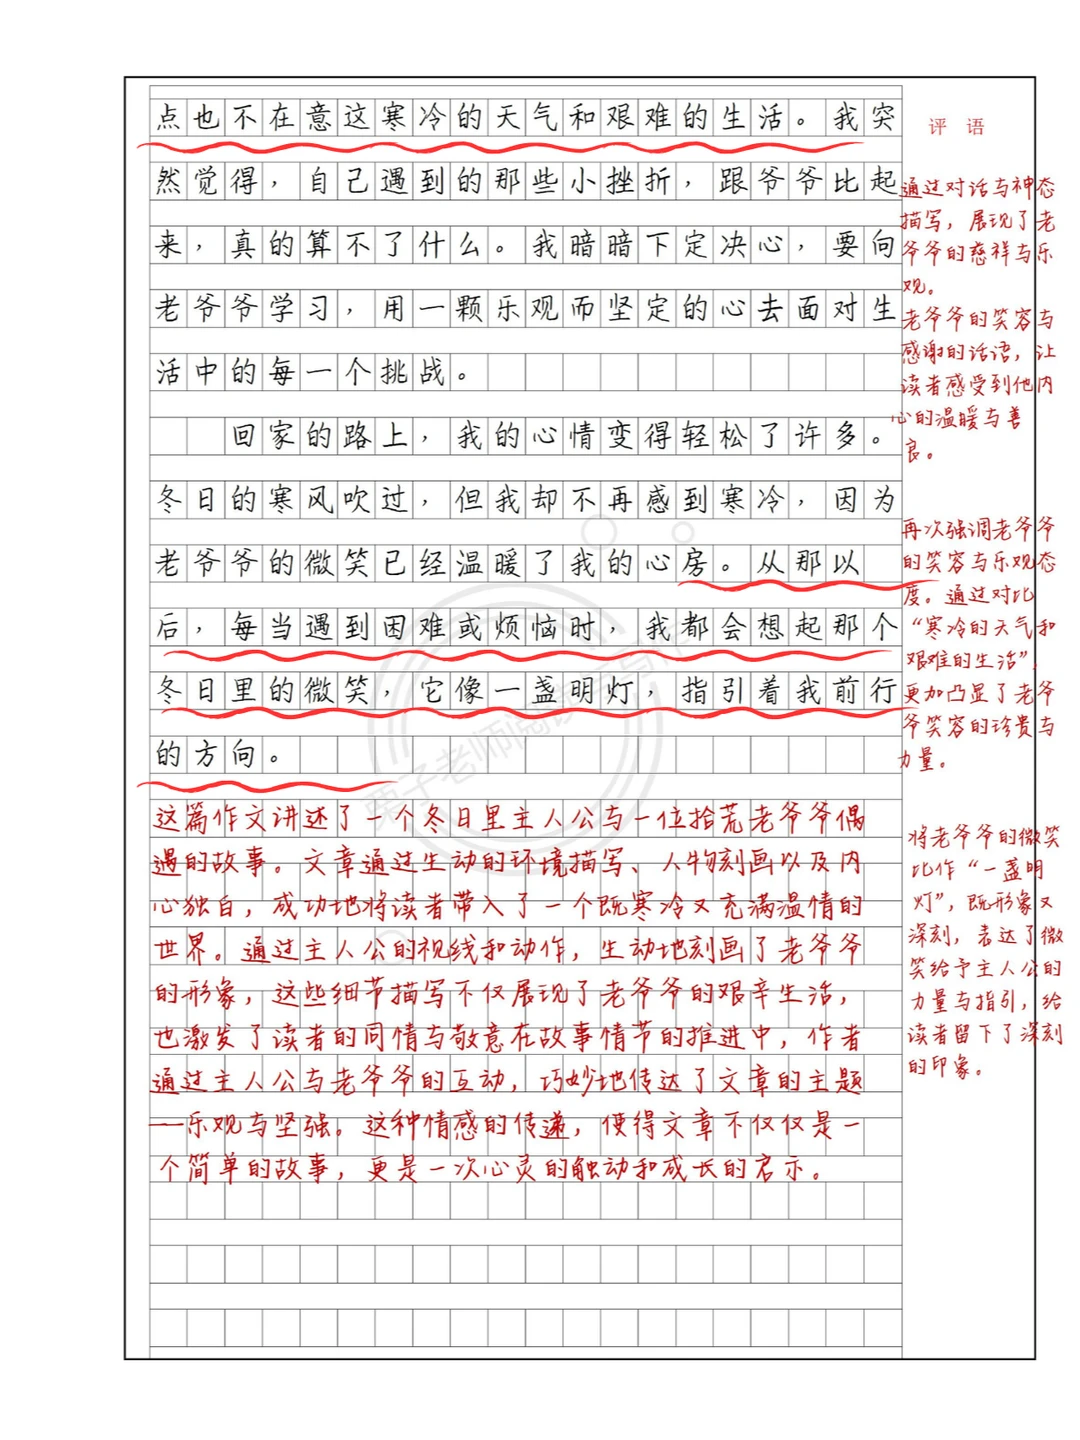 点也不在意这寒冷的天气和艰难的生活。我突
然觉得，自己遇到的那些小挫折，跟爷爷比起
来，真的算不了什么。我暗暗下定决心，要向
老爷爷学习，用一颗乐观而坚定的心去面对生
活中的每一个挑战。
回家的路上，我的心情变得轻松了许多。
冬日的寒风吹过，但我却不再感到寒冷，因为
老爷爷的微笑已经温暖了我的心房。从那以
后，每当遇到困难或烦恼时，我都会想起那个
冬日里的微笑，它像一盏明灯，指引着我前行
的方向。
这篇作文讲述了一个冬日里主人公与一位拾荒老爷爷偶
遇的故事。文章通过生动的环境描写、人物刻画以及内
心独白，成功地将读者带入了一个既寒冷又充满温情的
世界。通过主人公的视线和动作，生动地刻画了老爷爷
的形象，这些细节描写不仅展现了老爷爷的艰辛生活，
也激发了读者的同情与敬意在故事情节的推进中，作者
通过主人公与老爷爷的互动，巧妙地传达了文章的主题
——乐观与坚强。这种情感的传递，使得文章不仅仅是一
个简单的故事，更是一次心灵的触动和成长的启示。
评 语
通过对话与神态
描写，展现了老
爷爷的慈祥与乐
观。
老爷爷的笑容与
感谢的话语，让
读者感受到他内
心的温暖与善
良。
再次强调老爷爷
的笑容与乐观态
度。通过对比
“寒冷的天气和
艰难的生活”，
更加凸显了老爷
爷笑容的珍贵与
力量。
将老爷爷的微笑
比作“一盏明
灯”，既形象又
深刻，表达了微
笑给予主人公的
力量与指引，给
读者留下了深刻
的印象。